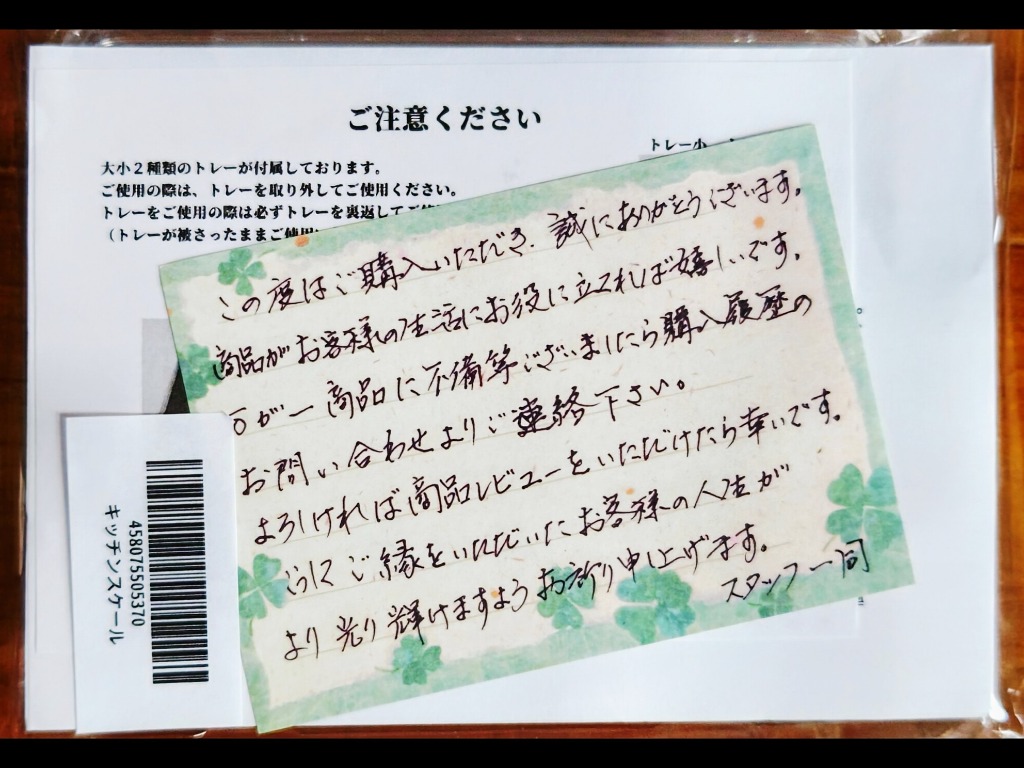 ご注意ください
大小2種類のトレーが付属しております。
ご使用の際は、トレーを取り外してご使用ください。
トレーをご使用の際は必ずトレーを裏返してご使
(トレーが被さったままご使用
トレー小
この度はご購入いただき、誠にありがとうございます。
商品がお客様の生活にお役に立てれば嬉しいです。
万が一商品に不備等ございましたら購入履歴の
お問い合わせよりご連絡下さい。
よろしければ商品レビューをいただけたら幸いです。
ご縁をいただいたお客様の人生が
より光り輝けますようお祈り申上げます。
スタッフ一同
4580755505370
キッチンスケール